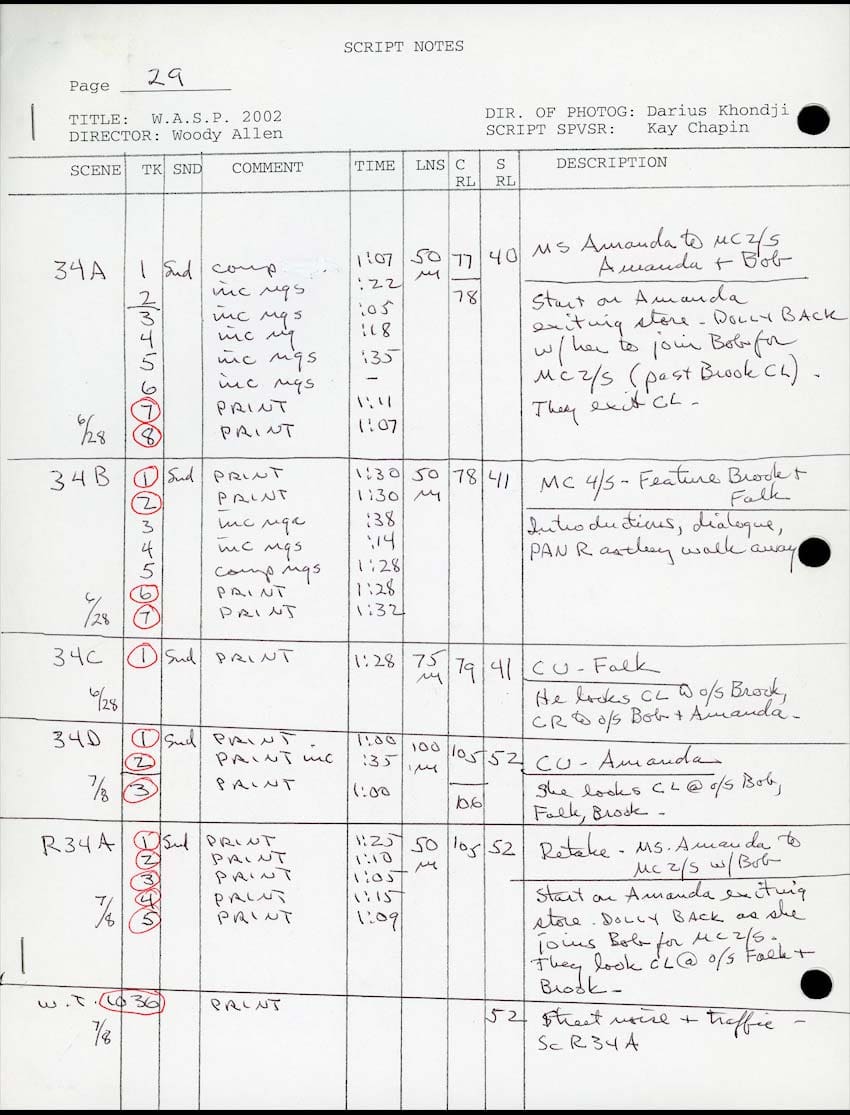 SCRIPT NOTES
Page 29
TITLE: W.A.S.P. 2002 DIR. OF PHOTOG: Darius Khondji
DIRECTOR: Woody Allen SCRIPT SPVSR: Kay Chapin
SCENE TK SND COMMENT TIME LNS C RL S RL DESCRIPTION
34A 1 Snd comp 1:07 50 M 77 40 MS Amanda to MC 2/S
2 inc ngs :22 78 Amanda + Bob
3 inc ngs :05 Start on Amanda
4 inc ng :18 exiting store - DOLLY BACK
5 inc ngs :35 w/ her to join Bob for
6 inc ngs – MC 2/S (past Brook CL).
7 PRINT 1:11 They exit CL.
6/28 8 PRINT 1:07
34B 1 Snd PRINT 1:30 50 M 78 41 MC 4/S - Feature Brook +
2 PRINT 1:30 Falk
3 inc nge :38 Introductions, dialogue,
4 inc ngs :14 PAN R as they walk away
5 comp ngs 1:28
6 PRINT 1:28
6/28 7 PRINT 1:32
34C 1 Snd PRINT 1:28 75 M 79 41 CU - Falk
He looks CL @ o/s Brook,
6/28 CR to o/s Bob + Amanda -
34D 1 Snd PRINT 1:00 100 M 105 52 CU - Amanda
2 PRINT inc :35
7/8 3 PRINT 1:00 106 She looks CL @ o/s Bob,
Falk, Brook -
R34A 1 Snd PRINT 1:25 50 M 105 52 Retake - MS. Amanda to
2 PRINT 1:10 MC 2/S w/ Bob
3 PRINT 1:05
4 PRINT 1:15 Start on Amanda exiting
7/8 5 PRINT 1:09 store. DOLLY BACK as she
joins Bob for MC 2/S.
They look CL @ o/s Falk +
Brook -
W.T. 1036 PRINT 52 Street noise + traffic -
7/8 Sc R34A